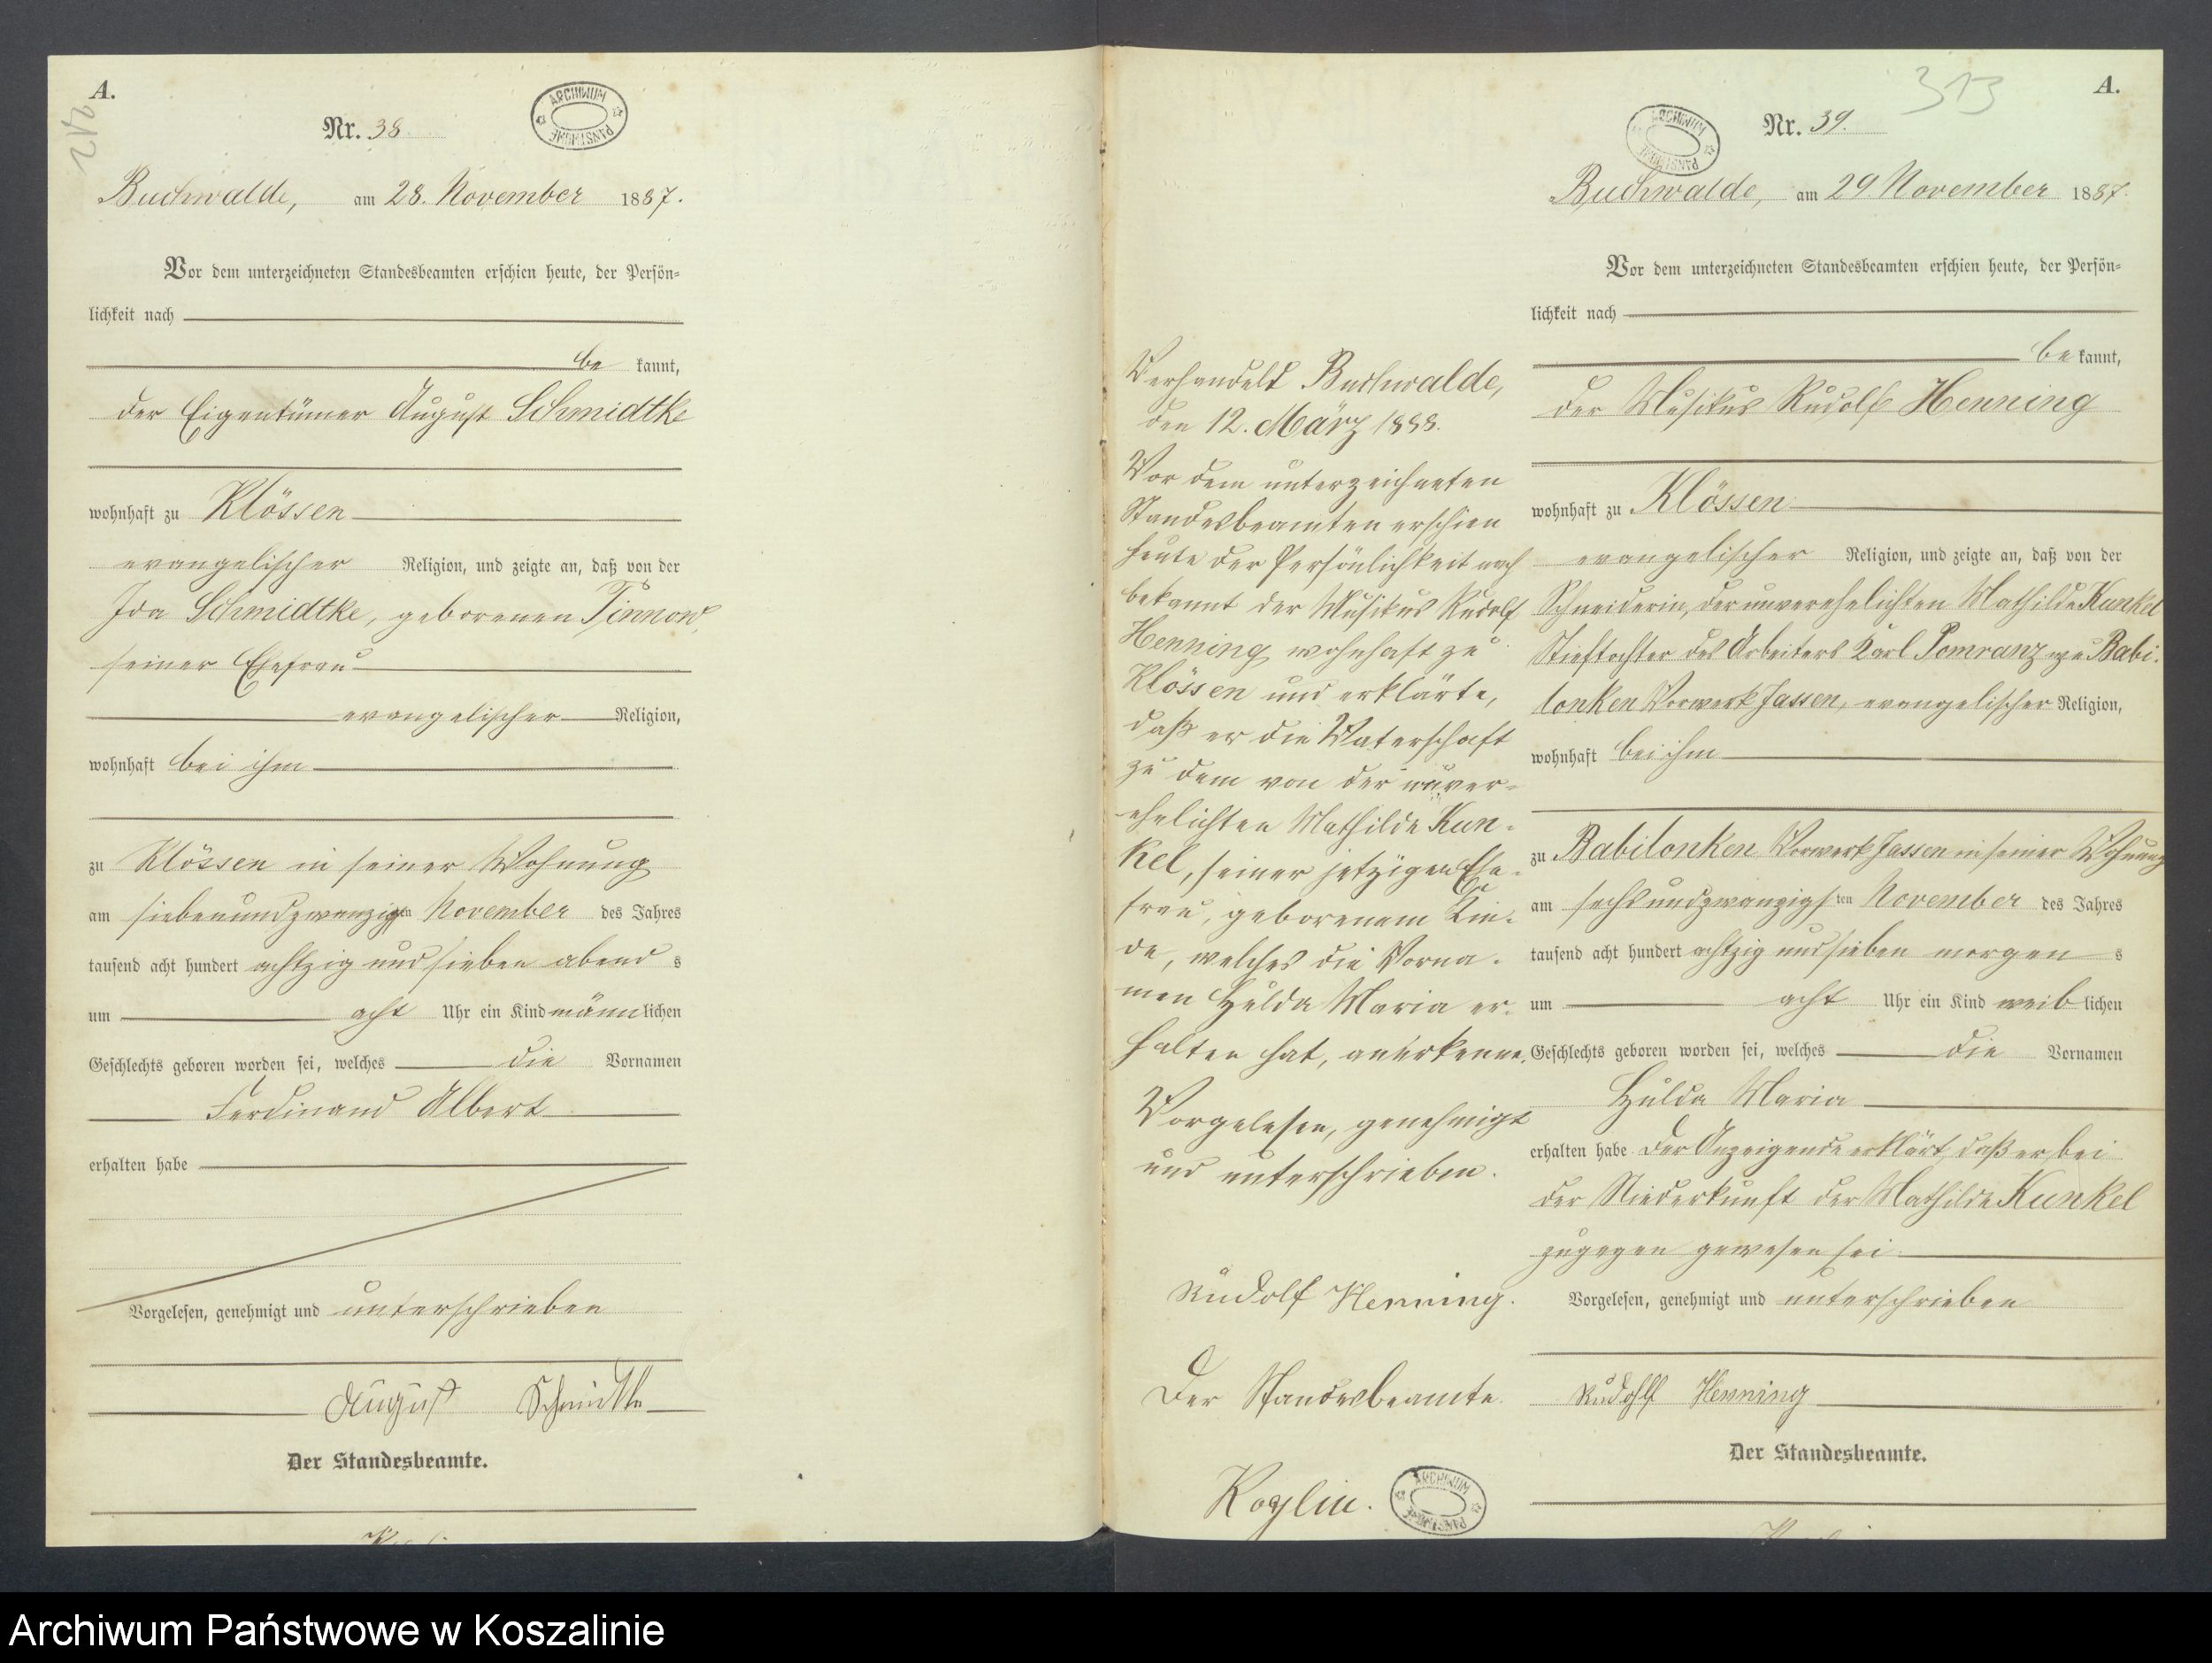 A.
Nr. 38.
ARCHIWUM PAŃSTWOWE
Buchwalde, am 28. November 1887.
Vor dem unterzeichneten Standesbeamten erschien heute, der Persön=
lichkeit nach
be kannt,
der Eigentümer August Schmidtke
wohnhaft zu Klössen
evangelischer Religion, und zeigte an, daß von der
Ida Schmidtke, geborenen Tinnow,
seiner Ehefrau
evangelischer Religion,
wohnhaft bei ihm
zu Klössen in seiner Wohnung
am siebenundzwanzigsten November des Jahres
tausend acht hundert achtzig und sieben abend s
um acht Uhr ein Kind männlichen
Geschlechts geboren worden sei, welches die Vornamen
Ferdinand Albert
erhalten habe
Vorgelesen, genehmigt und unterschrieben
August Schmidtke
Der Standesbeamte.
Verhandelt Buchwalde,
den 12. März 1888.
Vor dem unterzeichneten
Standesbeamten erschien
heute der Persönlichkeit nach
bekannt der Musikus Rudolf
Henning wohnhaft zu
Klössen und erklärte,
daß er die Vaterschaft
zu dem von der unver=
ehelichten Mathilde Kun=
kel, seiner jetzigen Ehe=
frau, geborenem Kin=
de, welches die Vorna=
men Hulda Maria er=
halten hat, anerkenne.
Vorgelesen, genehmigt
und unterschrieben.
Rudolf Henning.
Der Standesbeamte.
Koglin.
ARCHIWUM PAŃSTWOWE
313
A.
Nr. 39.
ARCHIWUM PAŃSTWOWE
Buchwalde, am 29. November 1887.
Vor dem unterzeichneten Standesbeamten erschien heute, der Persön=
lichkeit nach
be kannt,
der Musikus Rudolf Henning
wohnhaft zu Klössen
evangelischer Religion, und zeigte an, daß von der
Schneiderin, der unverehelichten Mathilde Kunkel
Stieftochter des Arbeiters Karl Pomranz zu Babi=
lonken Vorwerk Jassen, evangelischer Religion,
wohnhaft bei ihm
zu Babilonken Vorwerk Jassen in seiner Wohnung
am sechsundzwanzigsten November des Jahres
tausend acht hundert achtzig und sieben morgen s
um acht Uhr ein Kind weib lichen
Geschlechts geboren worden sei, welches die Vornamen
Hulda Maria
erhalten habe. Der Anzeigende erklärt, daß er bei
der Niederkunft der Mathilde Kunkel
zugegen gewesen sei.
Vorgelesen, genehmigt und unterschrieben
Rudolf Henning
Der Standesbeamte.
Archiwum Państwowe w Koszalinie